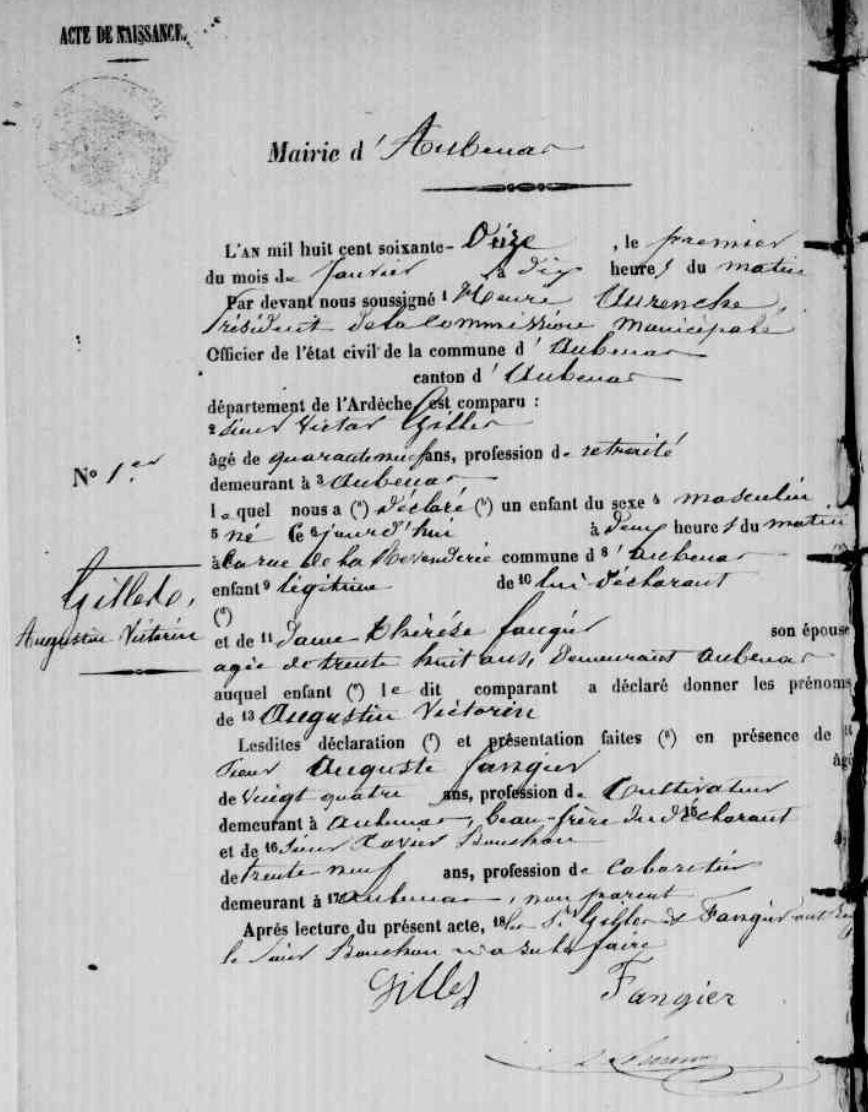 ACTE DE NAISSANCE.
Mairie d'Aubenas
L'AN mil huit cent soixante-Onze, le premier
du mois de Janvier à dix heures du matin
Par devant nous soussigné 1 Henri Aurenche,
Président de la Commission Municipale
Officier de l'état civil de la commune d'Aubenas
canton d'Aubenas
département de l'Ardèche, est comparu :
2 Sieur Victor Gilles
âgé de quarante neuf ans, profession de retraité
demeurant à 3 Aubenas
Nº 1.er
lequel nous a (a) déclaré (b) un enfant du sexe 4 masculin
5 né ce 6 jourd'hui à deux heures du matin
à la rue de la commune d 8'Aubenas
enfant 9 légitime de 10 lui déclarant
(c)
Gilles,
Augustin Victorin
et de 11 Dame Thérèse Fangier son épouse
agée de trente huit ans, Demeurant Aubenas
auquel enfant (d) le dit comparant a déclaré donner les prénoms
de 13 Augustin Victorin
Lesdites déclaration (f) et présentation faites (g) en présence de 14
Sieur Auguste Fangier âgé
de Vingt quatre ans, profession de Cultivateur
demeurant à Aubenas, beau-frère du déclarant 15
et de 16 Sieur Xavier Bouchon
de trente-neuf ans, profession de Cabaretier
demeurant à 17 Aubenas, non parent
Après lecture du présent acte, 18 les Srs Gilles et Fangier ont
le Sieur Bouchon n'a su le faire
Gilles Fangier